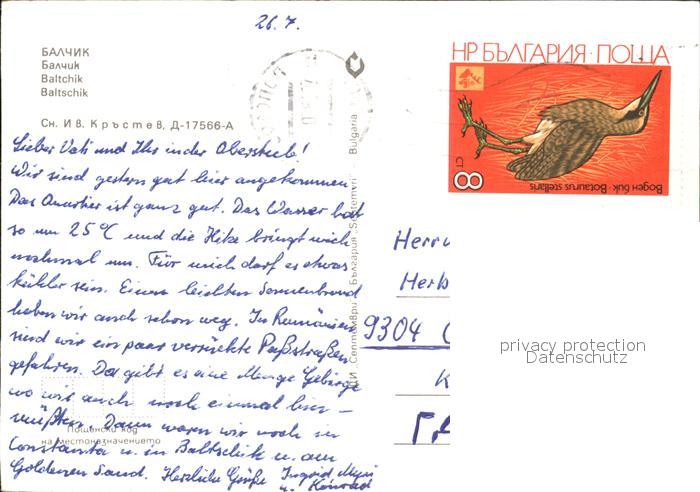 26.7.
БАЛЧИК
Балчик
Baltchik
Baltschik
Сн. Ив. Кръстев, Д-17566-А
НР БЪЛГАРИЯ · ПОЩА
8 СТ
Воден бик · Botaurus stellaris
Lieber Vati und Ihr in der Oberstub!
Wir sind gestern gut hier angekommen.
Das Quartier ist ganz gut. Das Wasser hat
so um 25°C und die Hitze bringt mich
nochmal um. Für mich darf es etwas
kühler sein. Einen leichten Sonnenbrand
haben wir auch schon weg. In Rumänien
sind wir ein paar verrückte Paßstraßen
gefahren. Da gibt es eine Menge Gebirge
wo wir auch noch einmal hin-
müßten. Dann waren wir noch in
Constanta u. in Baltschik u. am
Goldenen Sand. Herzliche Grüße Ingrid
u. Konrad
Пощенски код
на местоназначението
ДИ „Септември" България „Septemvri" Bulgaria
Herrn
Herb
9304
К
ГД
privacy protection
Datenschutz